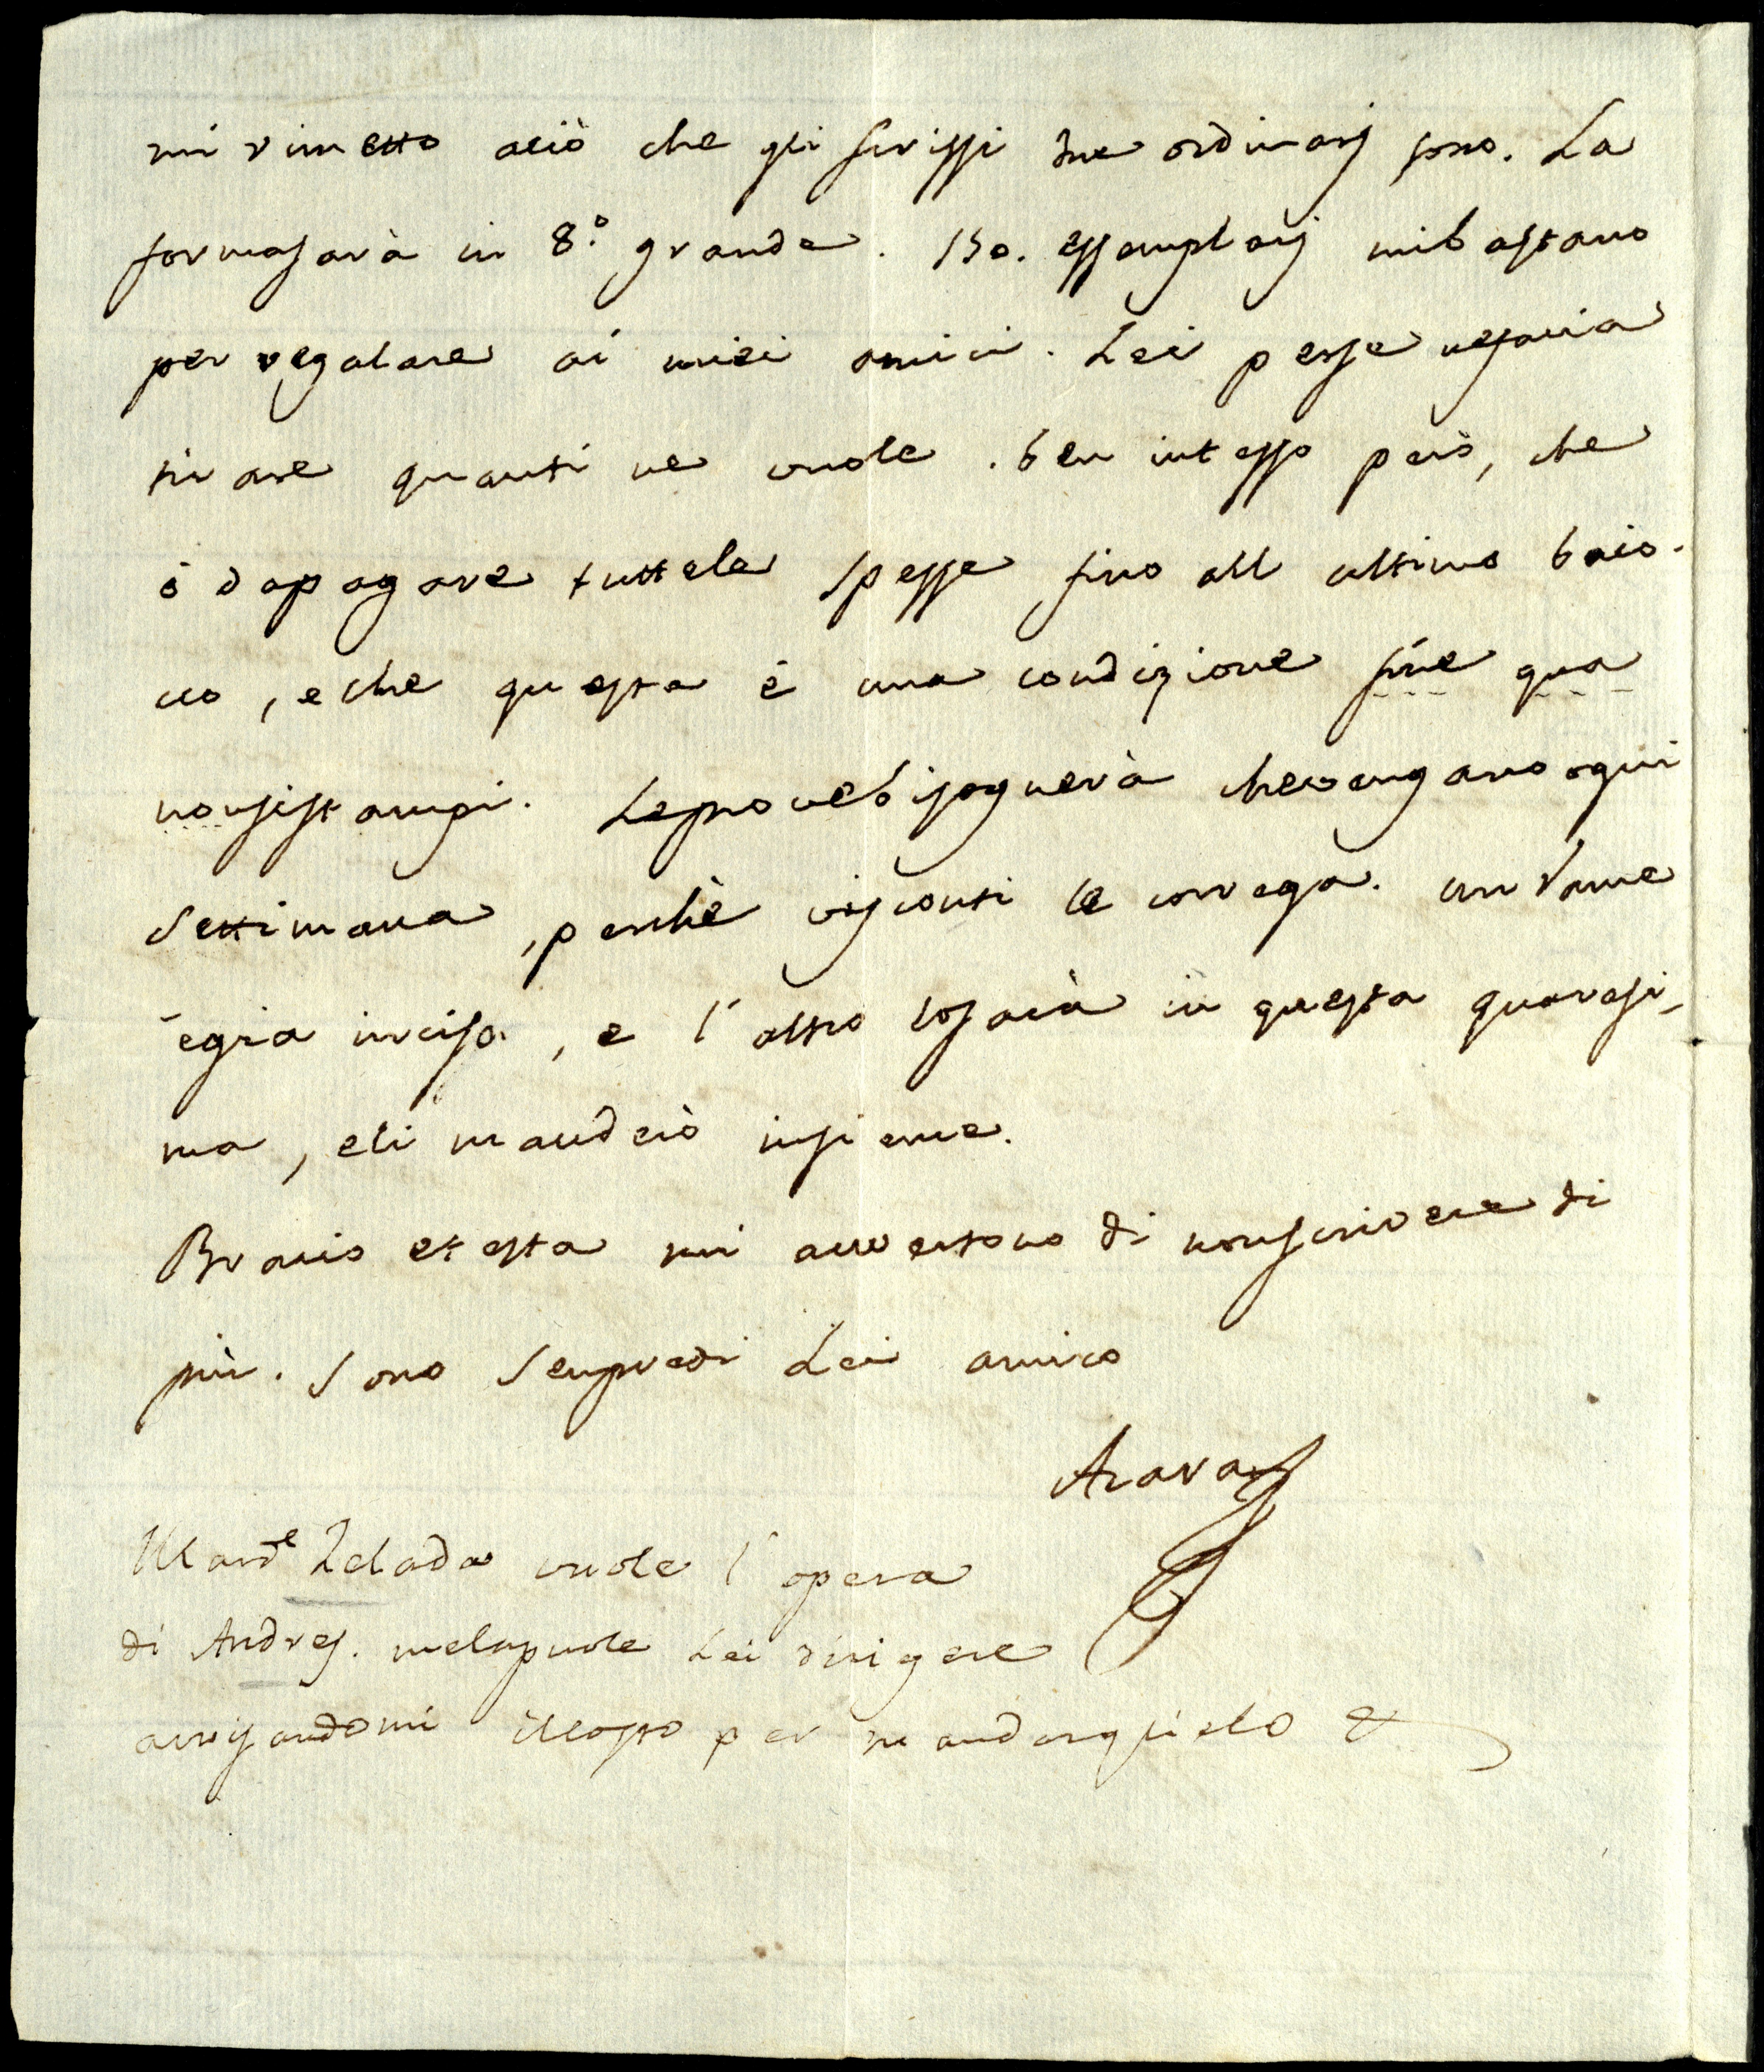 mi rimetto a ciò che gli scrissi due ordinarj sono. La
forma sarà in 8.º grande. 150. essemplarj mi bastano
per regalare ai miei amici. Lei per se ne faccia
tirare quanti ne vuole. ben intesso però, che
ò da pagare tutte le spesse fino all ultimo baio-
cco, e che questa è una condizione sine qua
non si stampi. Le prove bisognerà che vengano ogni
settimana, perchè visconti le corregga. un rame
è già inciso, e l'altro lo sarà in questa quaresi-
ma, e li manderò insieme.
Bracio e testa mi avvertono di non scrivere di
più. Sono sempre di Lei amico
Azara
Il Card.e Zelada vuole l'opera
di Andres. me la puole Lei dirigere
avvisandomi il costo per mandarglielo &